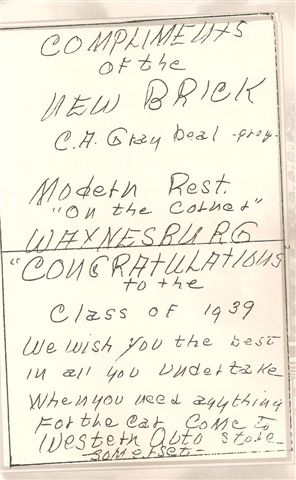 COMPLIMENTS
OF the
NEW BRICK
C.A. Gray Deal -prop-
Modern Rest.
"On the Corner"
WAYNESBURG
"CONGRATULATIONS"
to the
Class OF 1939
We wish you the best
in all you undertake
When you need anything
For the car Come To
Western Auto Store
-Somerset-